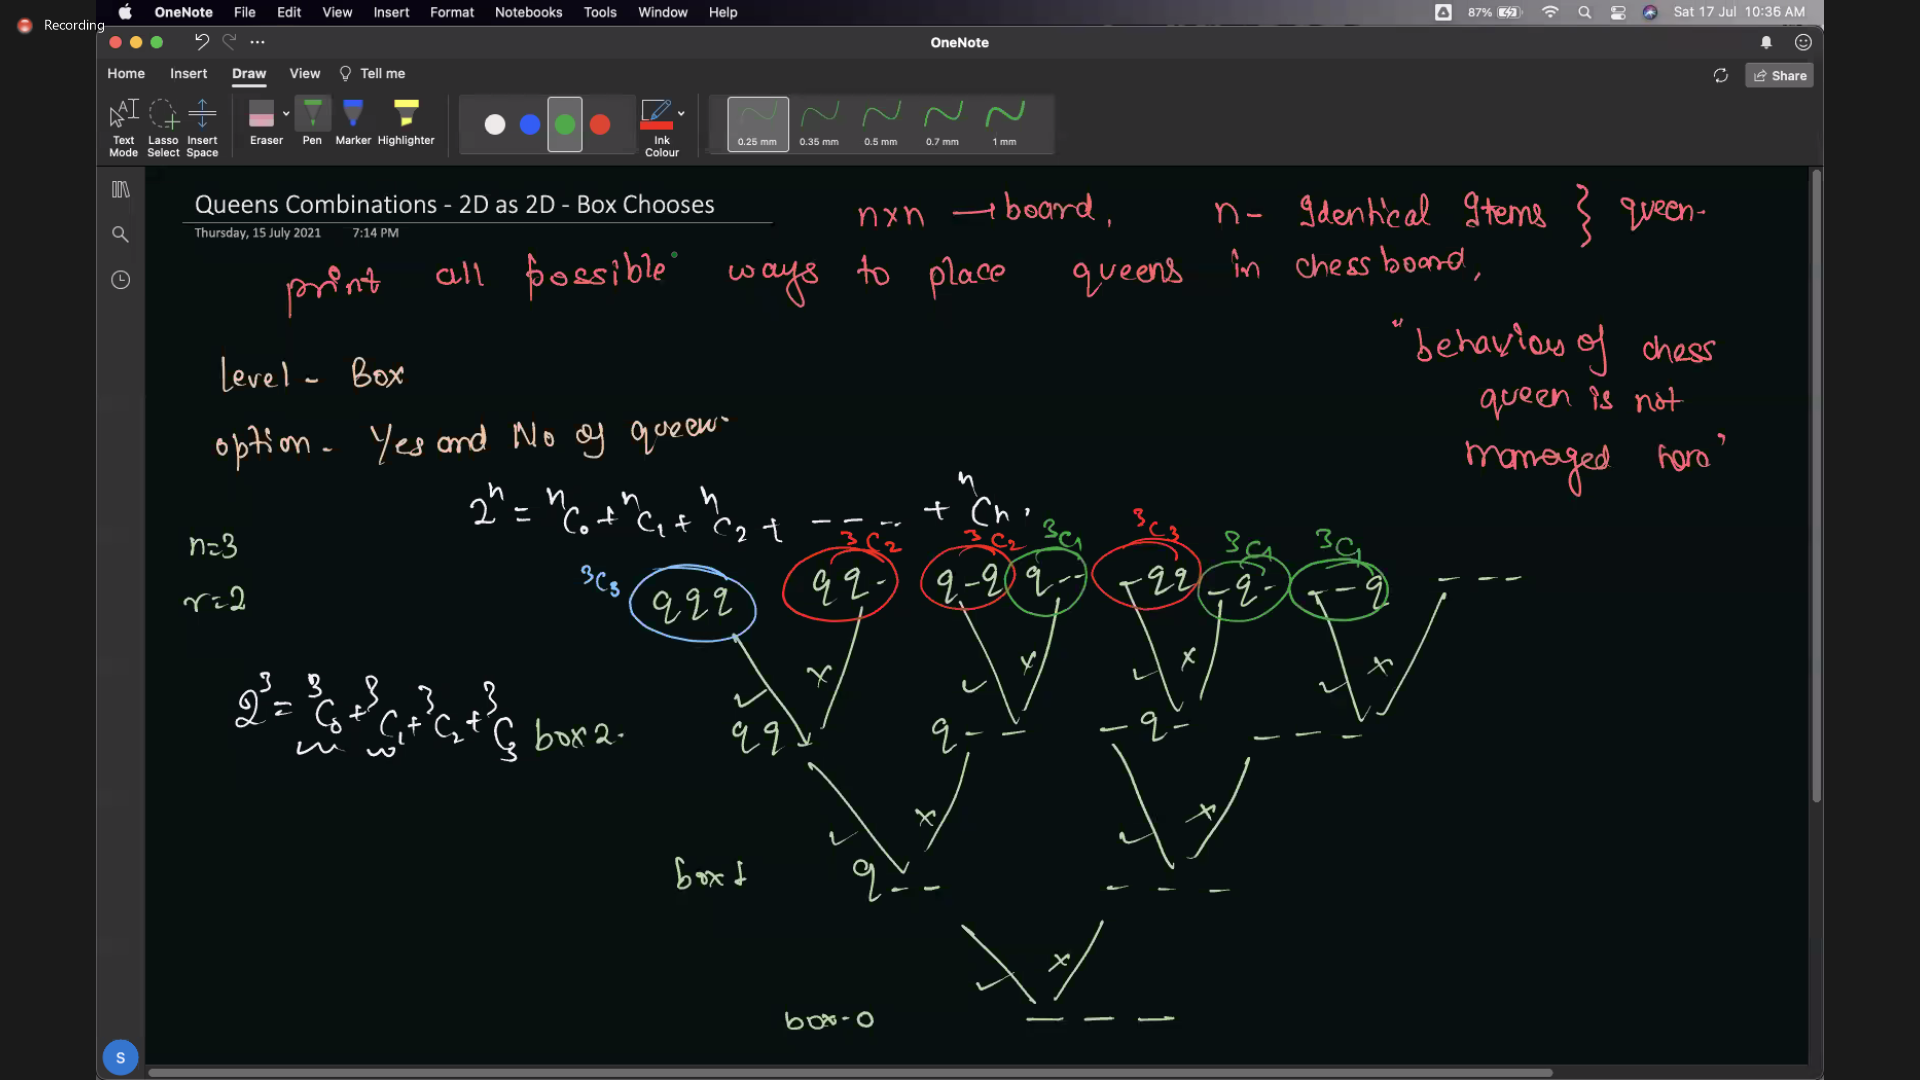 Recording
OneNote File Edit View Insert Format Notebooks Tools Window Help 87% Sat 17 Jul 10:36 AM
OneNote
Home Insert Draw View Tell me Share
Text Mode Lasso Select Insert Space Eraser Pen Marker Highlighter Ink Colour 0.25 mm 0.35 mm 0.5 mm 0.7 mm 1 mm
Queens Combinations - 2D as 2D - Box Chooses
Thursday, 15 July 2021 7:14 PM
n×n → board, n- Identical Items } queen.
print all possible ways to place queens in chess board,
"behaviour of chess
queen is not
managed here"
Level - Box
option - Yes and No of queen.
2ⁿ = ⁿC₀ + ⁿC₁ + ⁿC₂ + - - - - + ⁿCn.
n=3
r=2
³C₃ ³C₂ ³C₂ ³C₁ ³C₃ ³C₁ ³C₁
qqq qq- q-q q-- -qq -q- --q ---
✓ × ✓ × ✓ × ✓ ×
2³ = ³C₀ + ³C₁ + ³C₂ + ³C₃
box 2. qq- q-- -q- ---
✓ × ✓ ×
box 1 q-- ---
✓ ×
box-0 ---
S